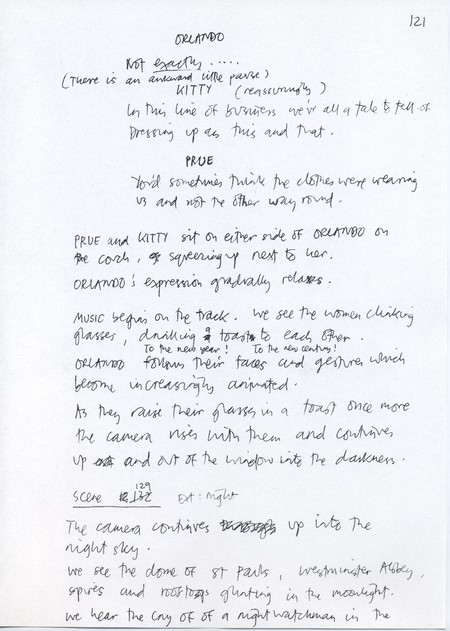 121
ORLANDO
Not exactly .....
(There is an awkward little pause)
KITTY (reassuringly)
In this line of business we've all a tale to tell of
Dressing up as this and that.
PRUE
You'd sometimes think the clothes were wearing
us and not the other way round.
PRUE and KITTY sit on either side of ORLANDO on
the couch, squeezing up next to her.
ORLANDO's expression gradually relaxes.
MUSIC begins on the track. We see the women clinking
glasses, drinking toasts to each other.
To the new year! To the new century!
ORLANDO follows their faces and gestures which
become increasingly animated.
As they raise their glasses in a toast once more
the camera rises with them and continues
up and out of the window into the darkness.
Scene 129 Ext: night
The camera continues up into the
night sky.
We see the dome of St Pauls, Westminster Abbey,
spires and rooftops glinting in the moonlight.
We hear the cry of of a nightwatchman in the